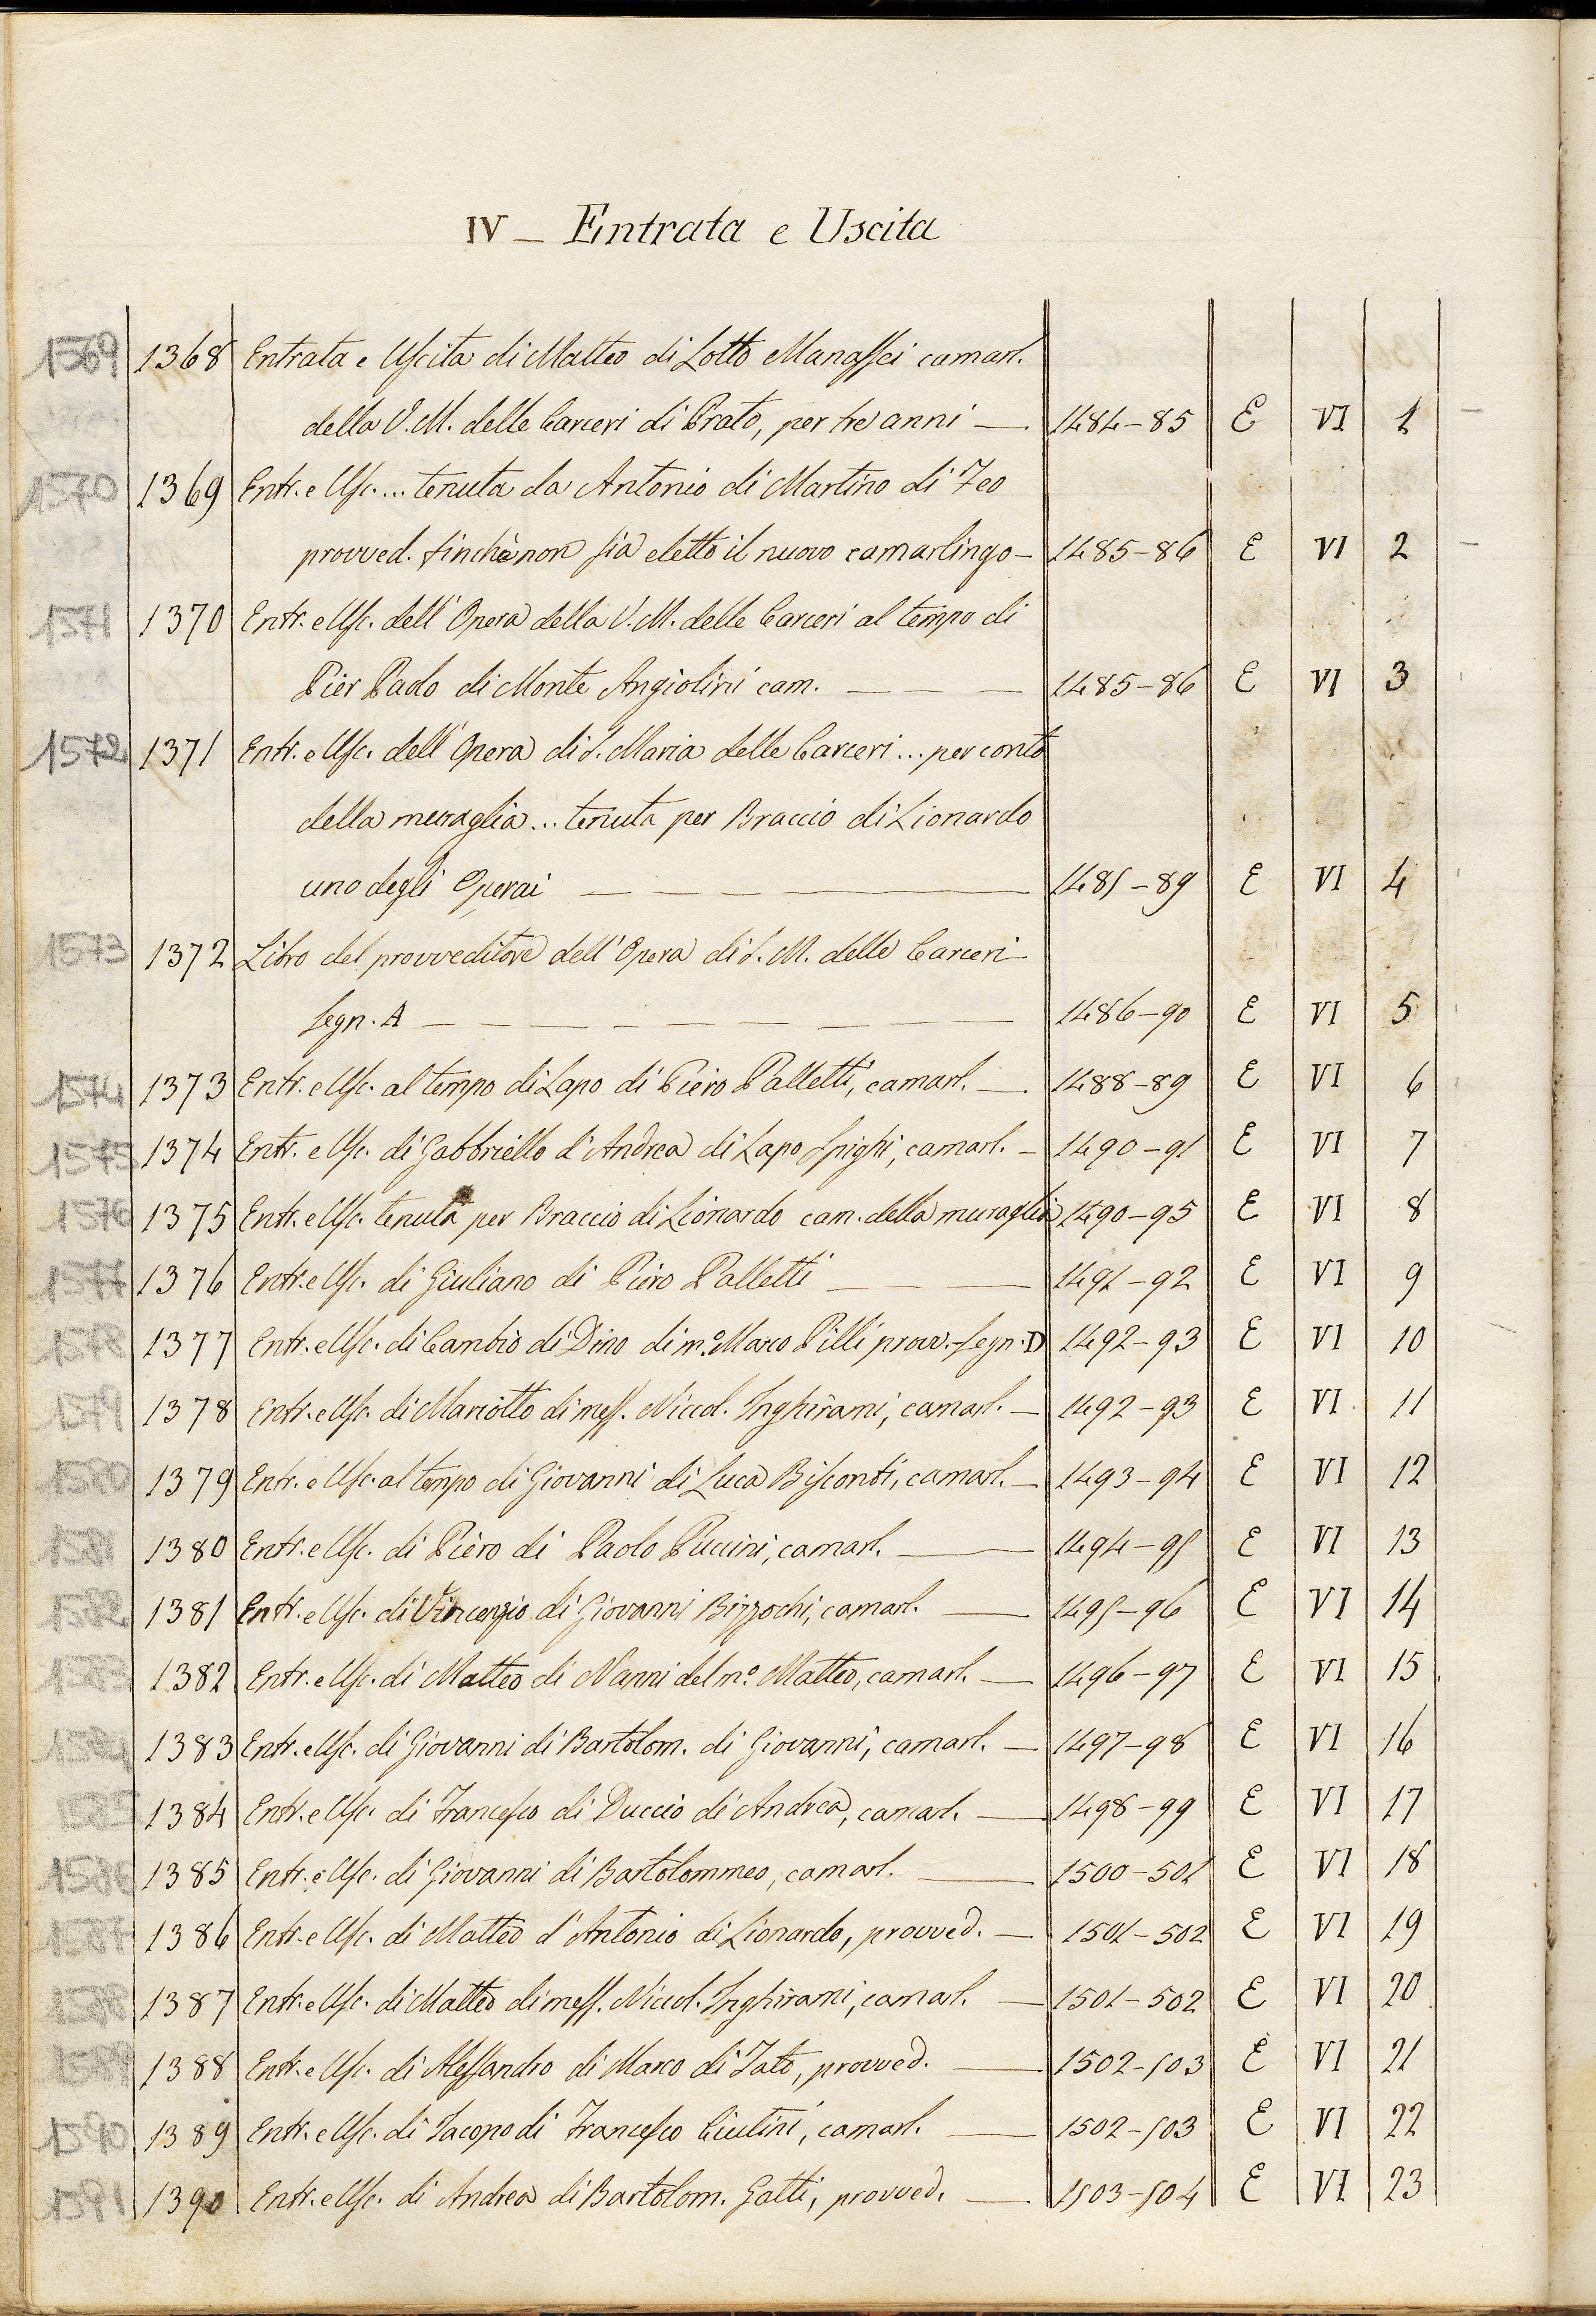 IV — Entrata e Uscita
1569 1368 Entrata e Uscita di Matteo di Lotto Manassei camarl.
della V. M. delle Carceri di Prato, per tre anni — 1484-85 E VI 1
1570 1369 Entr. e Usc. ... tenuta da Antonio di Martino di Feo
provved. finchè non sia eletto il nuovo camarlingo — 1485-86 E VI 2
1571 1370 Entr. e Usc. dell'Opera della V. M. delle Carceri al tempo di
Pier Paolo di Monte Angiolini cam. — — — 1485-86 E VI 3
1572 1371 Entr. e Usc. dell'Opera di S. Maria delle Carceri ... per conto
della muraglia ... tenuta per Braccio di Lionardo
uno degli Operai — — — — 1485-89 E VI 4
1573 1372 Libro del provveditore dell'Opera di S. M. delle Carceri
segn. A — — — — — — — — — 1486-90 E VI 5
1574 1373 Entr. e Usc. al tempo di Lapo di Piero Palletti, camarl. — 1488-89 E VI 6
1575 1374 Entr. e Usc. di Gabbriello d'Andrea di Lapo Spighi, camarl. — 1490-91 E VI 7
1576 1375 Entr. e Usc. tenuta per Braccio di Lionardo cam. della muraglia 1490-95 E VI 8
1577 1376 Entr. e Usc. di Giuliano di Piero Palletti — — — 1491-92 E VI 9
1578 1377 Entr. e Usc. di Cambio di Dino di m.º Marco Pilli provv. - segn. D 1492-93 E VI 10
1579 1378 Entr. e Usc. di Mariotto di mess. Niccol. Inghirami, camarl. — 1492-93 E VI 11
1580 1379 Entr. e Usc. al tempo di Giovanni di Luca Bisconti, camarl. — 1493-94 E VI 12
1581 1380 Entr. e Usc. di Piero di Paolo Puccini, camarl. — 1494-95 E VI 13
1582 1381 Entr. e Usc. di Vincenzio di Giovanni Bizzochi, camarl. — 1495-96 E VI 14
1583 1382 Entr. e Usc. di Matteo di Nanni del m.º Matteo, camarl. — 1496-97 E VI 15
1584 1383 Entr. e Usc. di Giovanni di Bartolom. di Giovanni, camarl. — 1497-98 E VI 16
1585 1384 Entr. e Usc. di Francesco di Duccio di Andrea, camarl. — 1498-99 E VI 17
1586 1385 Entr. e Usc. di Giovanni di Bartolommeo, camarl. — 1500-501 E VI 18
1587 1386 Entr. e Usc. di Matteo d'Antonio di Lionardo, provved. — 1501-502 E VI 19
1588 1387 Entr. e Usc. di Matteo di mess. Niccol. Inghirami, camarl. — 1501-502 E VI 20
1589 1388 Entr. e Usc. di Alessandro di Marco di Tato, provved. — 1502-503 E VI 21
1590 1389 Entr. e Usc. di Iacopo di Francesco Ciutini, camarl. — 1502-503 E VI 22
1591 1390 Entr. e Usc. di Andrea di Bartolom. Gatti, provved. — 1503-504 E VI 23